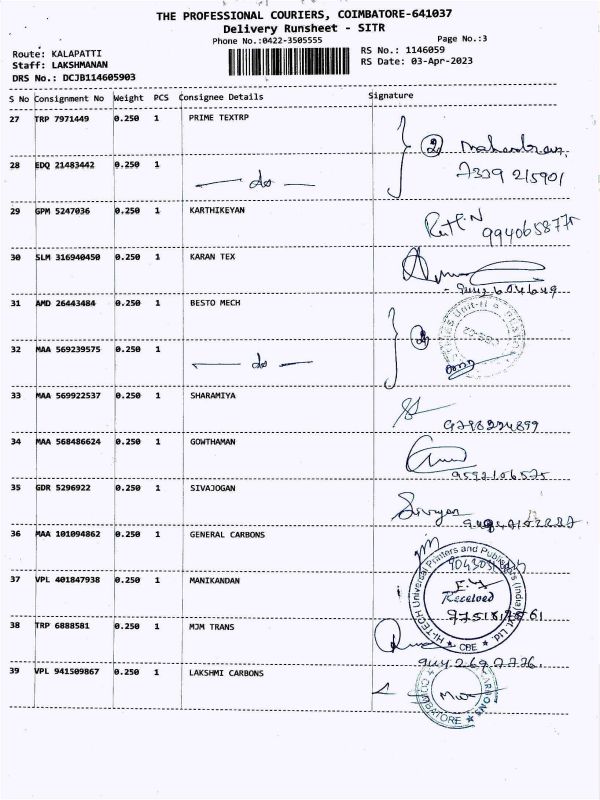 THE PROFESSIONAL COURIERS, COIMBATORE-641037
Delivery Runsheet - SITR
Phone No.:0422-3505555
Page No.:3
Route: KALAPATTI
RS No.: 1146059
Staff: LAKSHMANAN
RS Date: 03-Apr-2023
DRS No.: DCJB114605903
S No Consignment No Weight PCS Consignee Details Signature
27 TRP 7971449 0.250 1 PRIME TEXTRP
2
28 EDQ 21483442 0.250 1 do
7339 215901
29 GPM 5247036 0.250 1 KARTHIKEYAN
30 SLM 316940450 0.250 1 KARAN TEX
31 AMD 26443484 0.250 1 BESTO MECH
2
32 MAA 569239575 0.250 1 do
33 MAA 569922537 0.250 1 SHARAMIYA
34 MAA 568486624 0.250 1 GOWTHAMAN
9592106575
35 GDR 5296922 0.250 1 SIVAJOGAN
36 MAA 101094862 0.250 1 GENERAL CARBONS
HI-TECH Universal Printers and Publishers (India) Pvt. Ltd.
37 VPL 401847938 0.250 1 MANIKANDAN
Received
★ CBE ★
38 TRP 6888581 0.250 1 MJM TRANS
39 VPL 941509867 0.250 1 LAKSHMI CARBONS